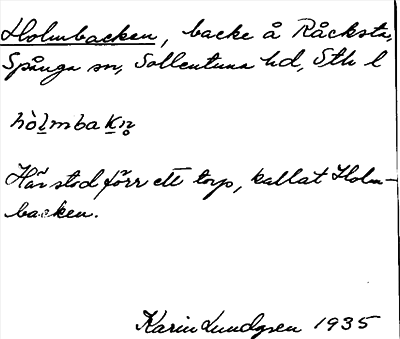 Holmbacken, backe å Råcksta,
Spånga sn, Sollentuna hd, Sth l
hòlmbakn̥
Här stod förr ett torp, kallat Holm-
backen.
Karin Lundgren 1935